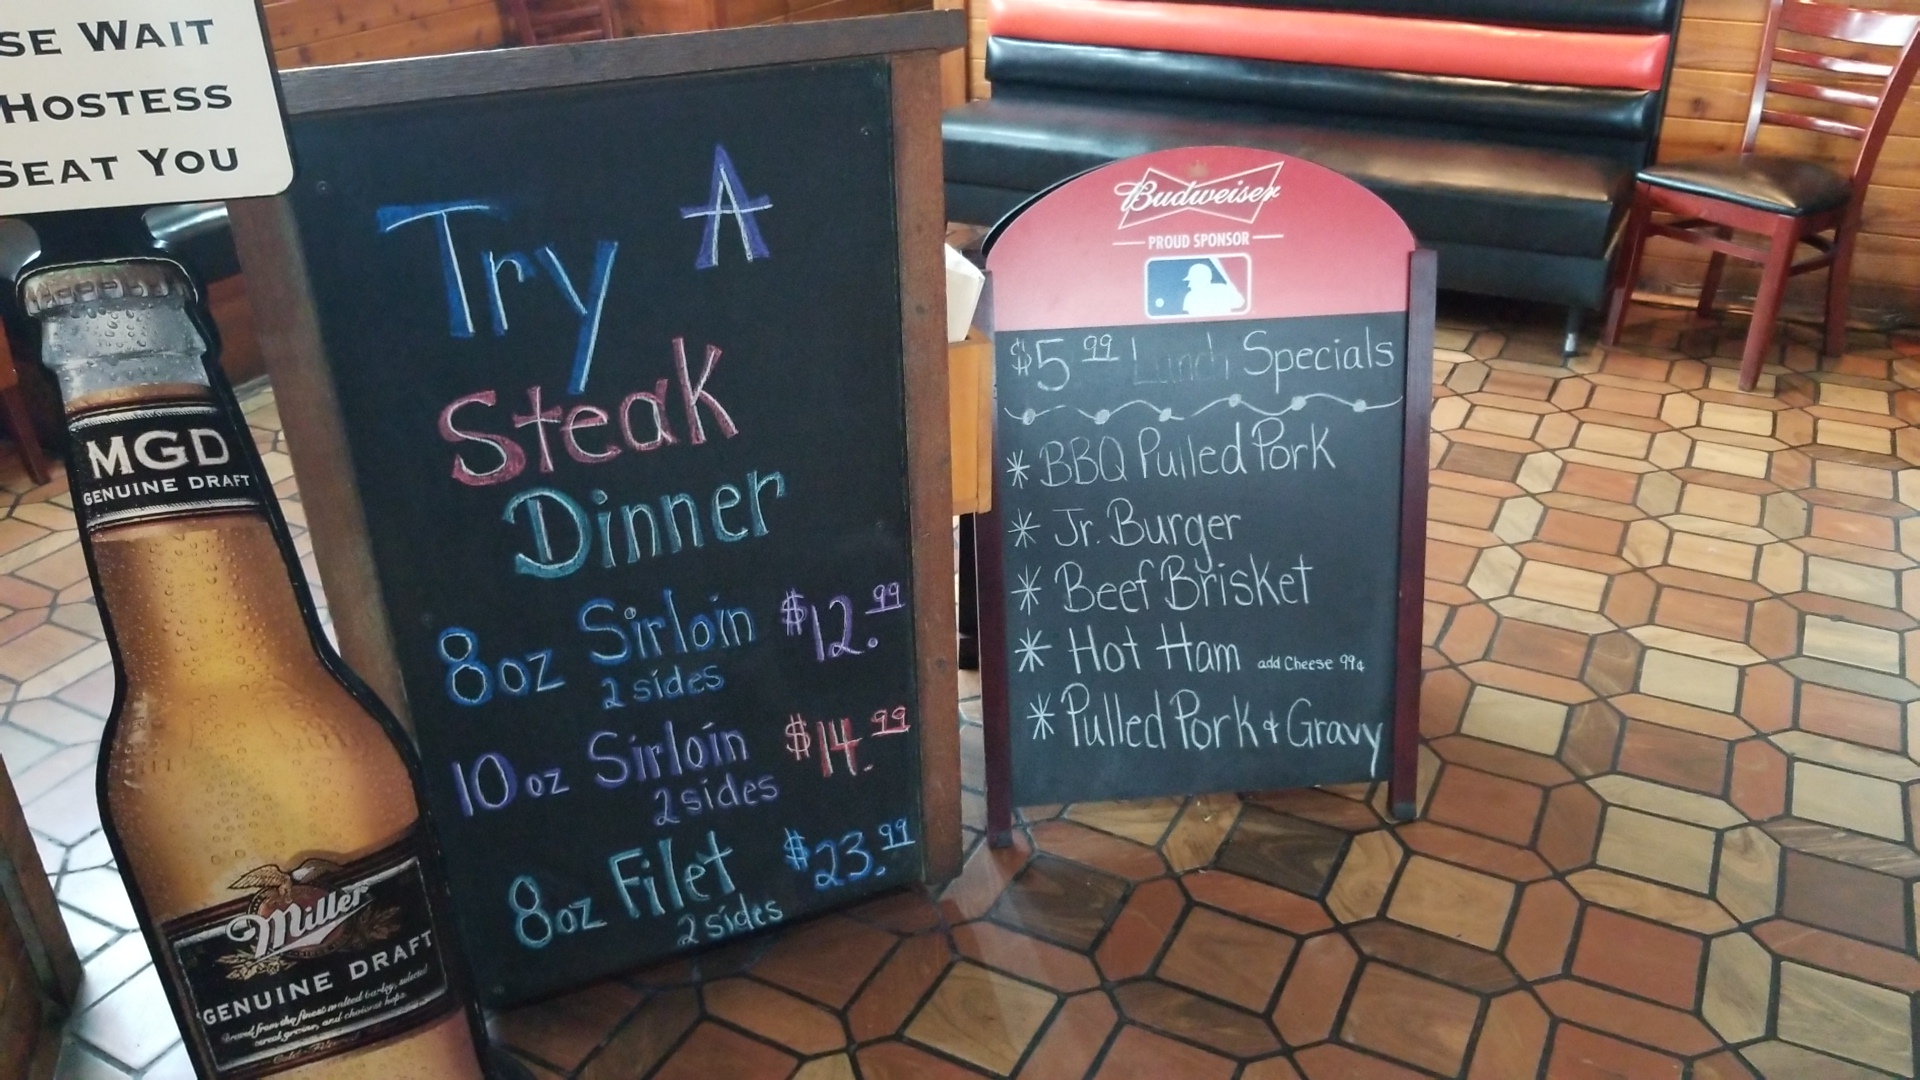 SE WAIT
HOSTESS
SEAT YOU
MGD
GENUINE DRAFT
Miller
GENUINE DRAFT
Brewed from the finest malted barley, selected
cereal grains, and choicest hops.
Cold-Filtered
Try A
Steak
Dinner
8oz Sirloin $12.99
2 sides
10oz Sirloin $14.99
2 sides
8oz Filet $23.99
2 sides
Budweiser
PROUD SPONSOR
$5 99 Lunch Specials
* BBQ Pulled Pork
* Jr. Burger
* Beef Brisket
* Hot Ham add Cheese 99¢
* Pulled Pork & Gravy